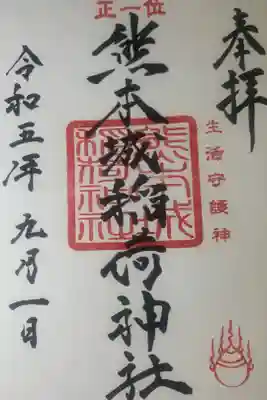 奉拝
生活守護神
正一位
熊本城稲荷神社
熊本城稲荷神社
令和五年 元月一日